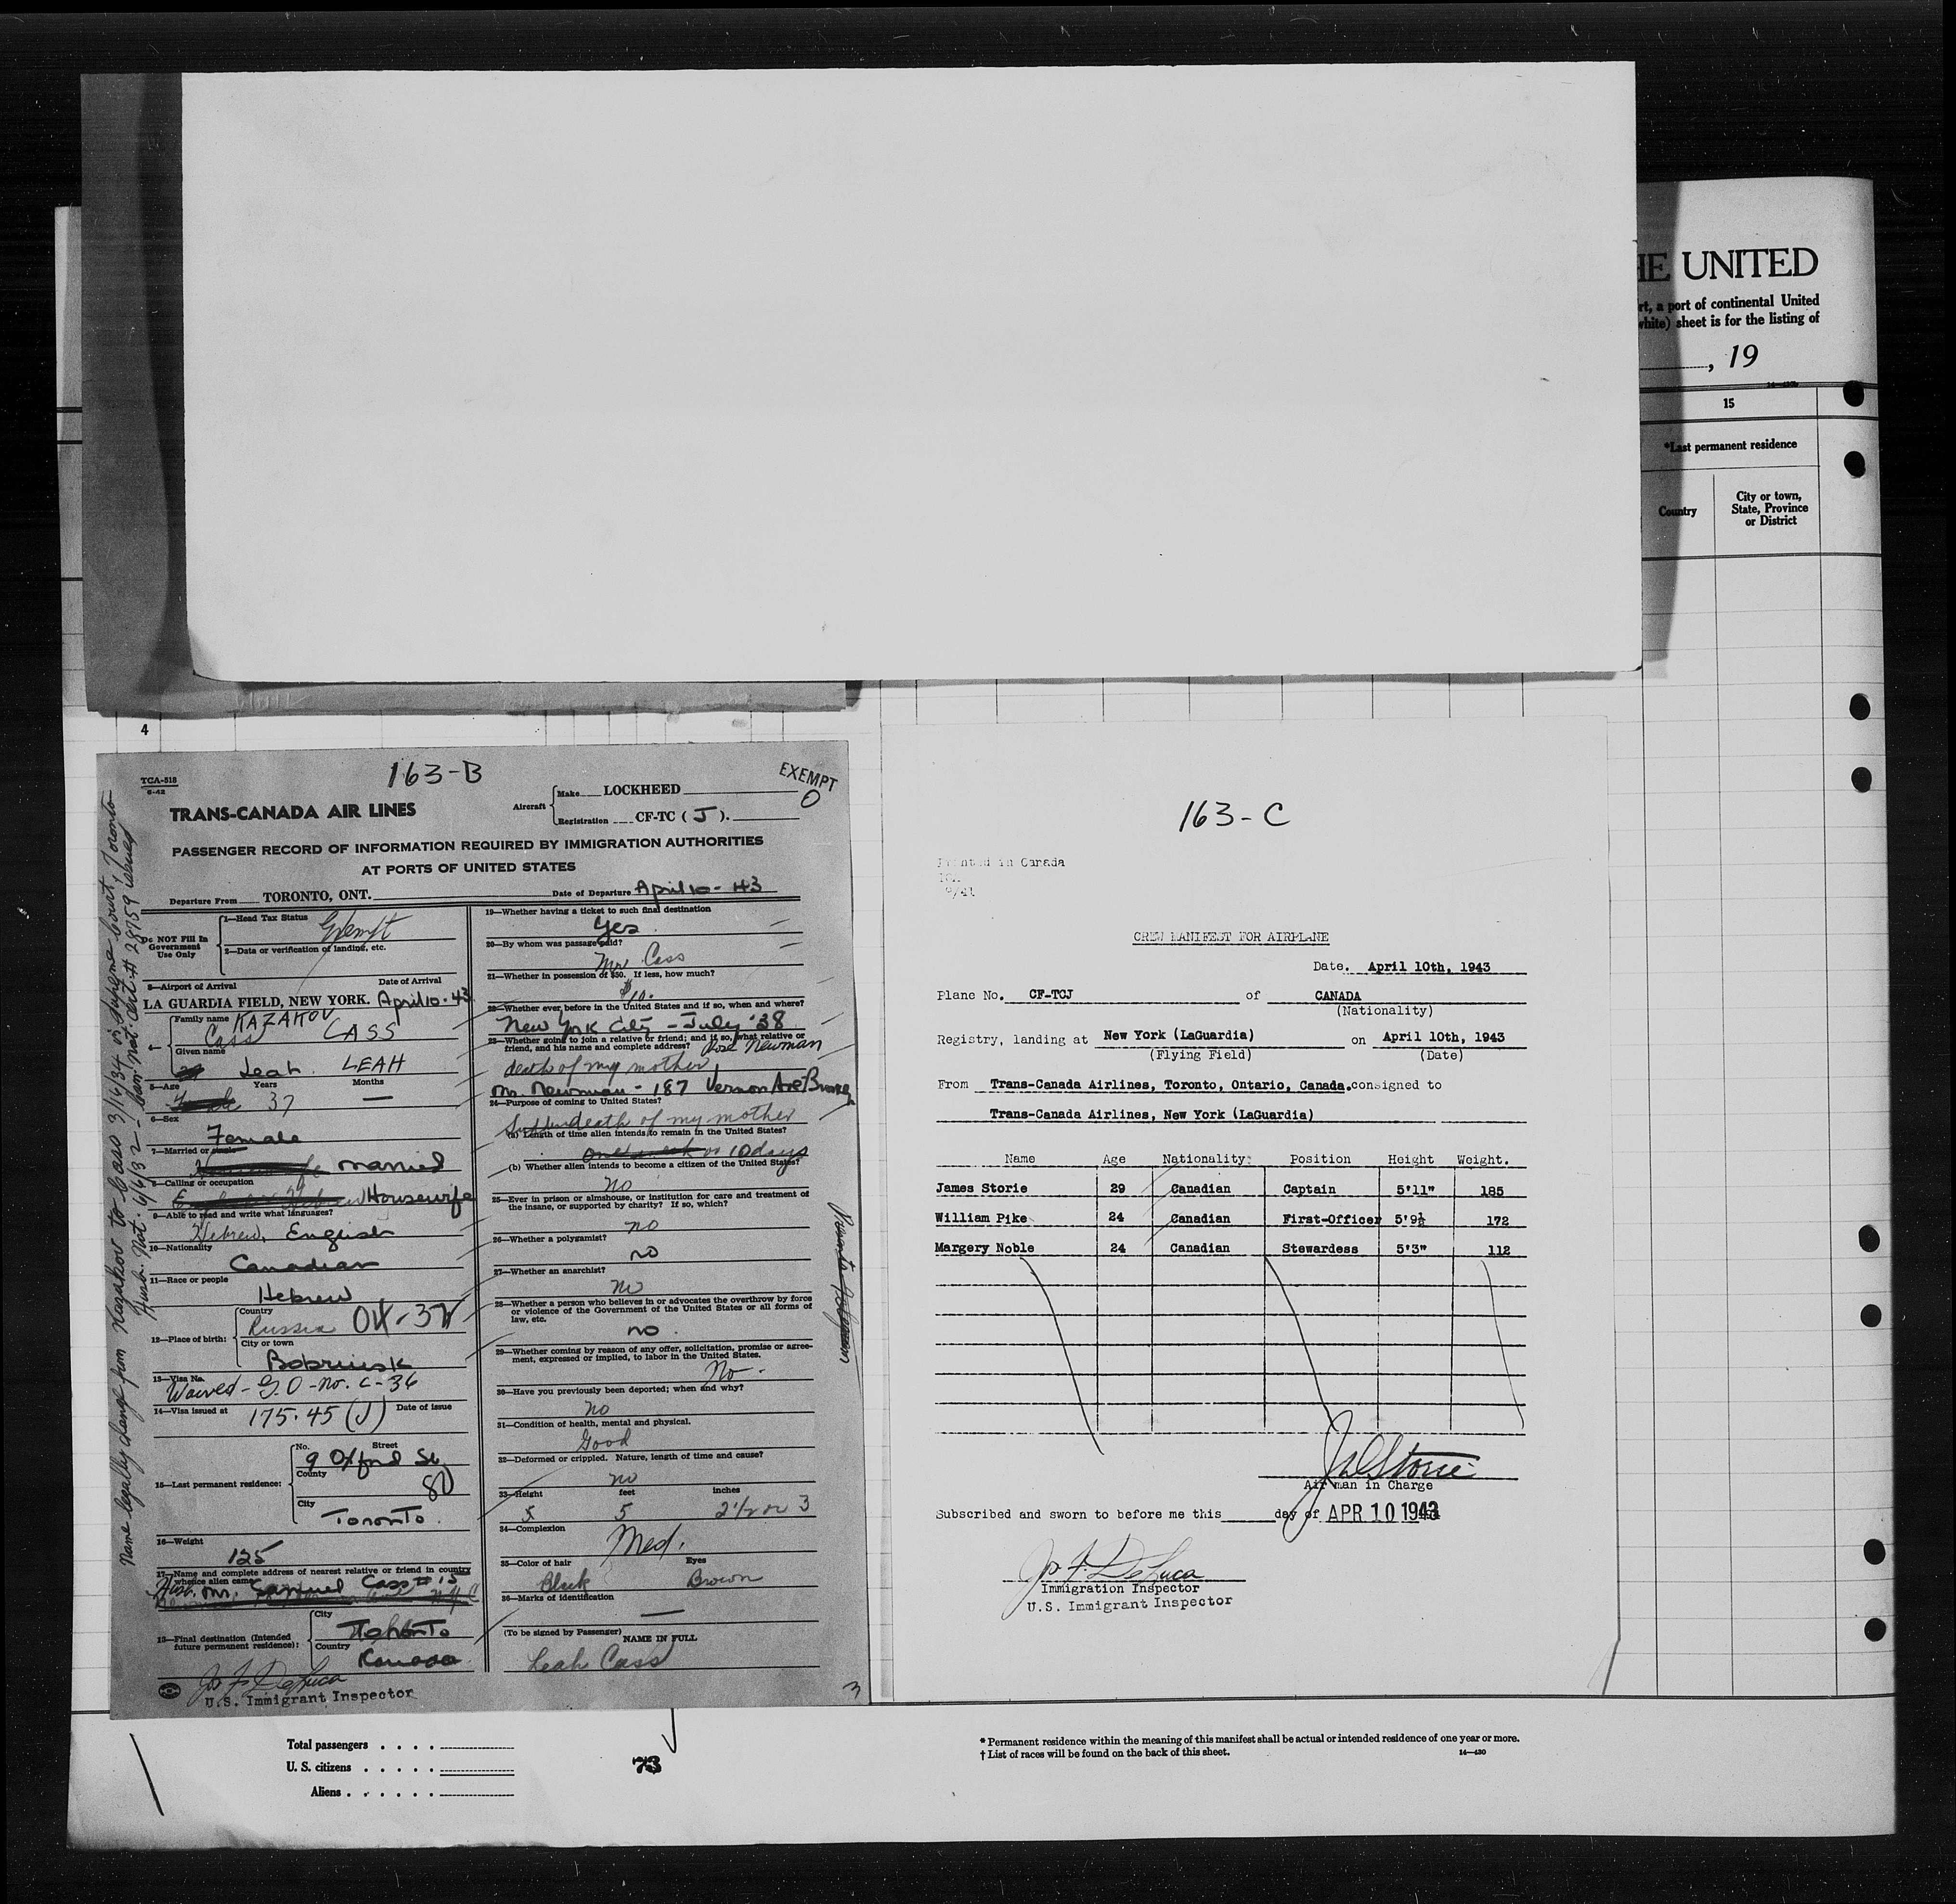 HE UNITED
rt, a port of continental United
white) sheet is for the listing of
, 19
15
*Last permanent residence
Country
City or town,
State, Province
or District
4
163-B
EXEMPT
0
TCA-518
6-42
TRANS-CANADA AIR LINES
Aircraft
Make LOCKHEED
Registration CF-TC ( J ).
PASSENGER RECORD OF INFORMATION REQUIRED BY IMMIGRATION AUTHORITIES
AT PORTS OF UNITED STATES
Departure From TORONTO, ONT.
Date of Departure April 10 - 43
Do NOT Fill In
Government
Use Only
1—Head Tax Status
Exempt
2—Data or verification of landing, etc.
3—Airport of Arrival
Date of Arrival
LA GUARDIA FIELD, NEW YORK. April 10. 43
4—
Family name KAZAKOV
Cass CASS
Given name
Leah LEAH
5—Age Years Months
37 —
6—Sex
Female
7—Married or single
married
8—Calling or occupation
Housewife
9—Able to read and write what languages?
Hebrew, English
10—Nationality
Canadian
11—Race or people
Hebrew
12—Place of birth:
Country
Russia
City or town
Bobruisk
13—Visa No.
Waived - G.O - No. C-36
14—Visa issued at 175.45 (J) Date of issue
15—Last permanent residence:
No. Street
9 Oxford St.
County
80
City
Toronto.
16—Weight
125
17—Name and complete address of nearest relative or friend in country
whence alien came
Hus. Mr. Samuel Cass # 15
18—Final destination (Intended
future permanent residence):
City
Toronto
Country
Kanada
Jos F. DeLuca
U.S. Immigrant Inspector
19—Whether having a ticket to such final destination
Yes
20—By whom was passage paid?
Mr. Cass
21—Whether in possession of $50. If less, how much?
$10.
22—Whether ever before in the United States and if so, when and where?
New York City - July '38
23—Whether going to join a relative or friend; and if so, what relative or
friend, and his name and complete address? Rose Newman
death of my mother
Mr. Newman - 187 Vernon Ave
24—Purpose of coming to United States?
death of my mother
(a) Length of time alien intends to remain in the United States?
one week or 10 days
(b) Whether alien intends to become a citizen of the United States?
No
25—Ever in prison or almshouse, or institution for care and treatment of
the insane, or supported by charity? If so, which?
no
26—Whether a polygamist?
no
27—Whether an anarchist?
no
28—Whether a person who believes in or advocates the overthrow by force
or violence of the Government of the United States or all forms of
law, etc.
no.
29—Whether coming by reason of any offer, solicitation, promise or agree-
ment, expressed or implied, to labor in the United States.
No.
30—Have you previously been deported; when and why?
no
31—Condition of health, mental and physical.
Good
32—Deformed or crippled. Nature, length of time and cause?
no
33—Height feet inches
5 5 2 1/2 or 3
34—Complexion
Med.
35—Color of hair Eyes
Black Brown
36—Marks of identification
—
(To be signed by Passenger) NAME IN FULL
Leah Cass
3
Name legally change from Kazakov to Cass 3/16/34 in Supreme Court, Toronto
Husb. Nat. 6/6/32 - Can. nat. cert # 28759 issued
163-C
Printed in Canada
9/41
CREW MANIFEST FOR AIRPLANE
Date. April 10th, 1943
Plane No. CF-TCJ of CANADA
(Nationality)
Registry, landing at New York (LaGuardia) on April 10th, 1943
(Flying Field) (Date)
From Trans-Canada Airlines, Toronto, Ontario, Canada. consigned to
Trans-Canada Airlines, New York (LaGuardia)
Name Age Nationality Position Height Weight.
James Storie 29 Canadian Captain 5'11" 185
William Pike 24 Canadian First-Officer 5'9½ 172
Margery Noble 24 Canadian Stewardess 5'3" 112
Js Storie
Air man in Charge
Subscribed and sworn to before me this day of APR 10 1943
Jos F. DeLuca
Immigration Inspector
U.S. Immigrant Inspector
Total passengers . . . .
U. S. citizens . . . . .
Aliens . . . . . .
73
* Permanent residence within the meaning of this manifest shall be actual or intended residence of one year or more.
† List of races will be found on the back of this sheet.
14—430